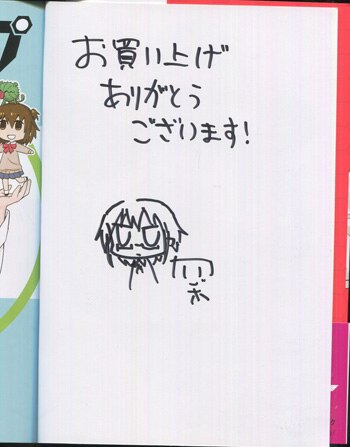 お買い上げ
ありがとう
ございます!
プ